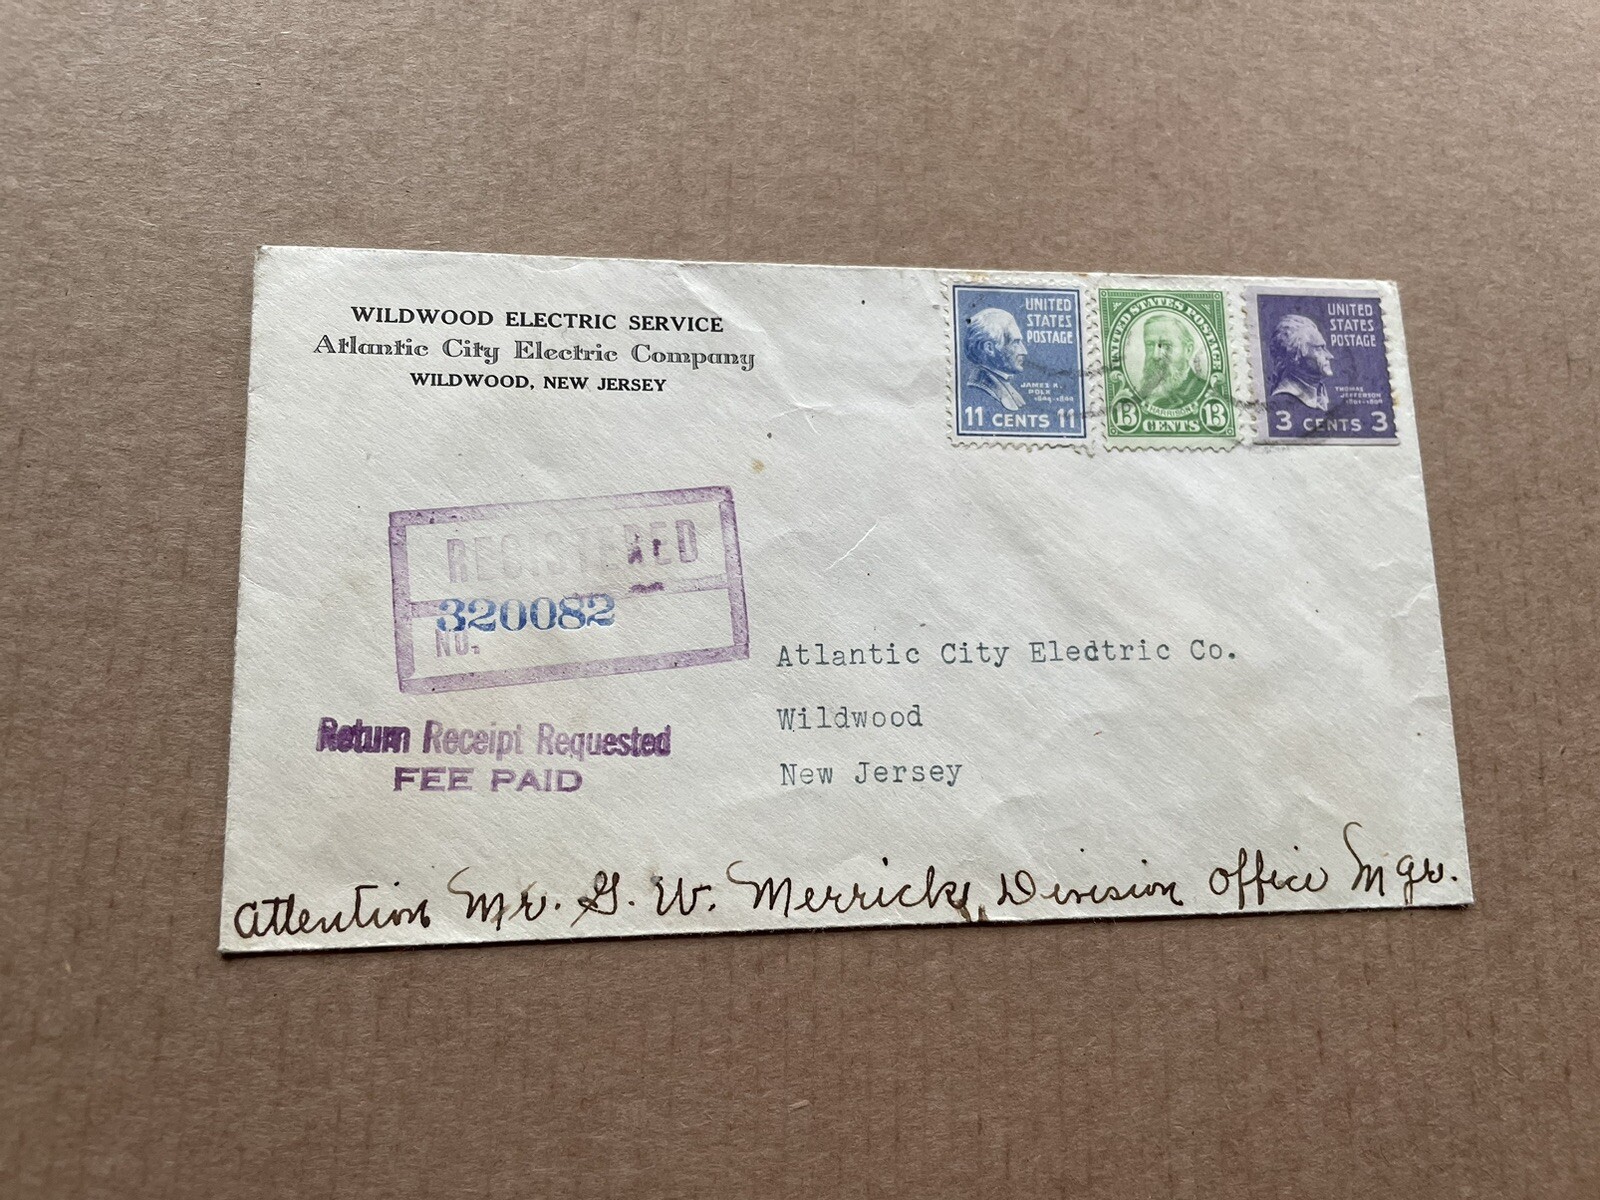 WILDWOOD ELECTRIC SERVICE
Atlantic City Electric Company
WILDWOOD, NEW JERSEY
UNITED
STATES
POSTAGE
JAMES K.
POLK
1845-1849
11 CENTS 11
UNITED STATES POSTAGE
HARRISON
13 CENTS 13
UNITED
STATES
POSTAGE
THOMAS
JEFFERSON
1801-1809
3 CENTS 3
REGISTERED
320082
NO.
Atlantic City Electric Co.
Wildwood
New Jersey
Return Receipt Requested
FEE PAID
Attention Mr. G. W. Merrick, Division Office Mgr.